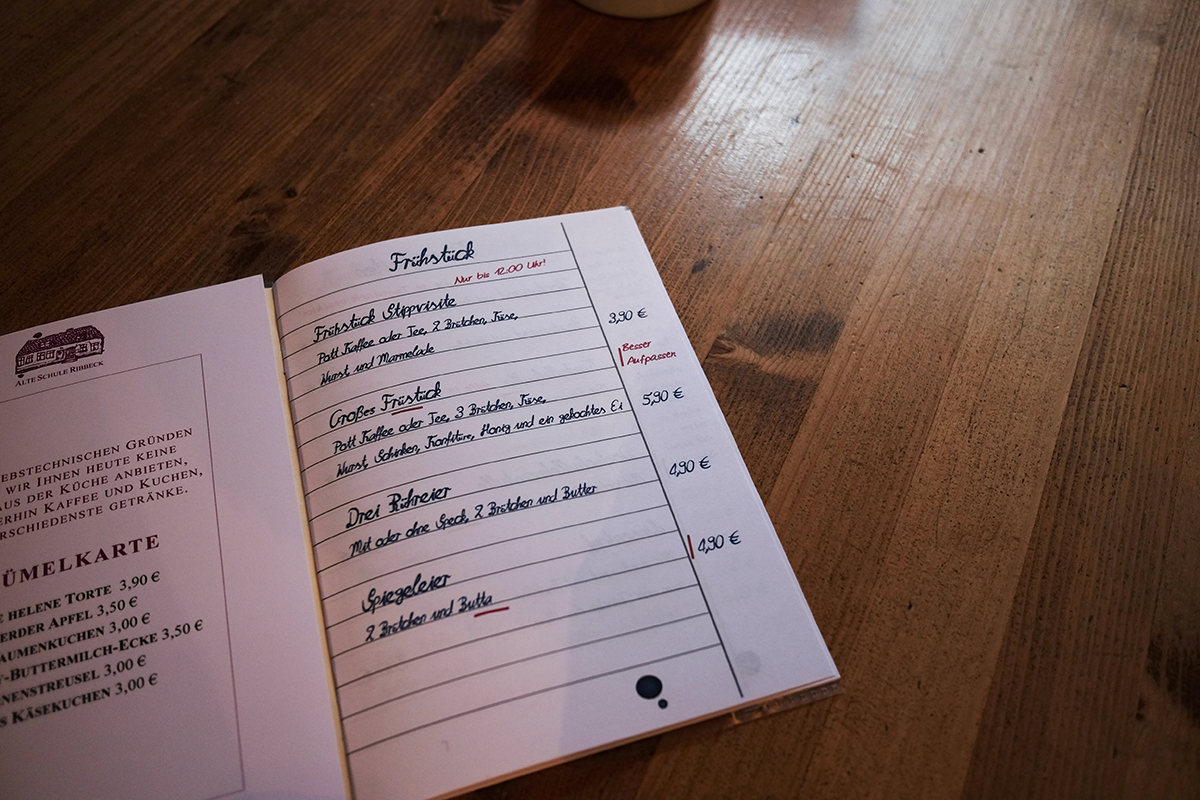 ALTE SCHULE RIBBECK
EBSTECHNISCHEN GRÜNDEN
WIR IHNEN HEUTE KEINE
AUS DER KÜCHE ANBIETEN,
ERHIN KAFFEE UND KUCHEN,
RSCHIEDENSTE GETRÄNKE.
ÜMELKARTE
E HELENE TORTE 3,90 €
ERDER APFEL 3,50 €
AUMENKUCHEN 3,00 €
Y-BUTTERMILCH-ECKE 3,50 €
NENSTREUSEL 3,00 €
S KÄSEKUCHEN 3,00 €
Frühstück
Nur bis 12:00 Uhr!
Frühstück Stippvisite 3,90 €
Pott Kaffee oder Tee, 2 Brötchen, Käse,
Wurst und Marmelade
Besser
Aufpassen
Großes Früstück 5,90 €
Pott Kaffee oder Tee, 3 Brötchen, Käse,
Wurst, Schinken, Konfitüre, Honig und ein gekochtes Ei
Drei Rühreier 4,90 €
Mit oder ohne Speck, 2 Brötchen und Butter
Spiegeleier 4,90 €
2 Brötchen und Butta